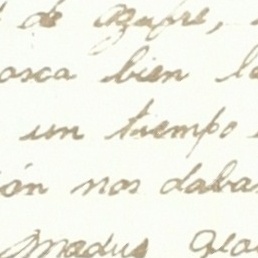 de azufre,
osca bien le
un tiempo
ón nos daba